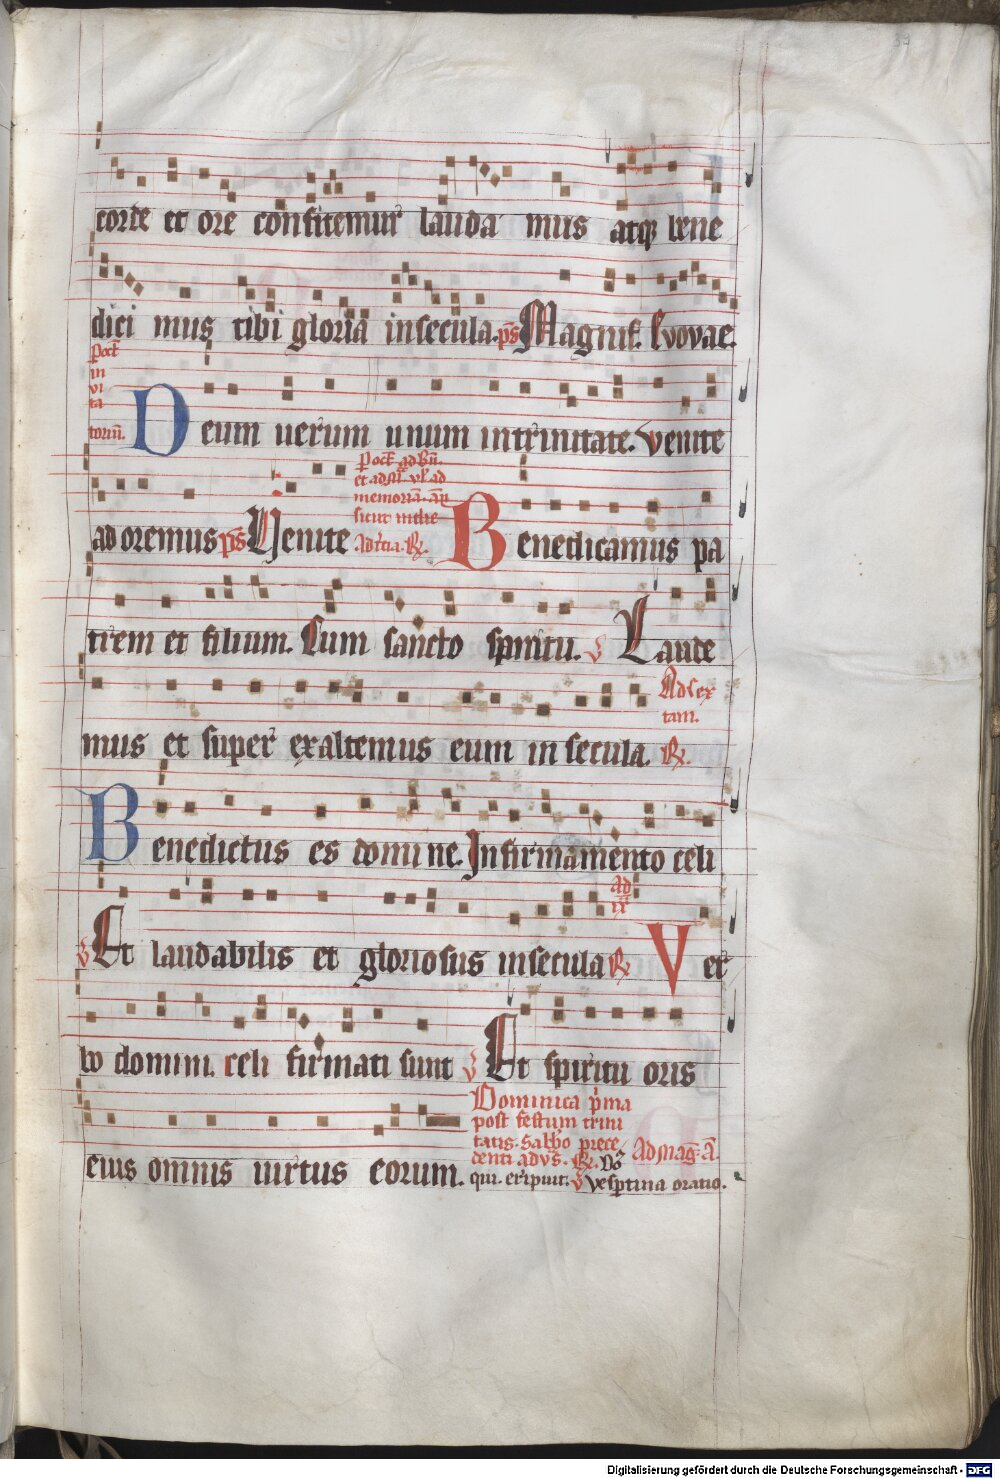 corde et ore confitemur lauda mus atqꝫ bene
dici mus tibi gloria in secula. ps̄ Magnif. Evovae.
Poct̄
in
vi
ta
toriū.
Deum uerum unum in trinitate. Venite
Poct̄. ad Bn̄.
et ad
memoriā. an̄
sicut in die
adoremus ps̄ Venite Ad tcia. R̷. Benedicamus pa
trem et filium. Cum sancto spiritu. v̄ Laude
Ad sex
tam.
mus et super exaltemus eum in secula. R̷.
Benedictus es domi ne. In firmamento celi
Ad
ix
v̄ Et laudabilis et gloriosus in secula R̷ Ver
bo domini. celi firmati sunt v̄ Et spiritu oris
Dominica p̄ma
post festum trini
tatis. Sabb̄o prece
denti ad vs̄. R̷. Ad maḡ. A̅.
eius omnis uirtus eorum. qui. eripuit. v̄ Vesptina oratio.
39
Digitalisierung gefördert durch die Deutsche Forschungsgemeinschaft - DFG